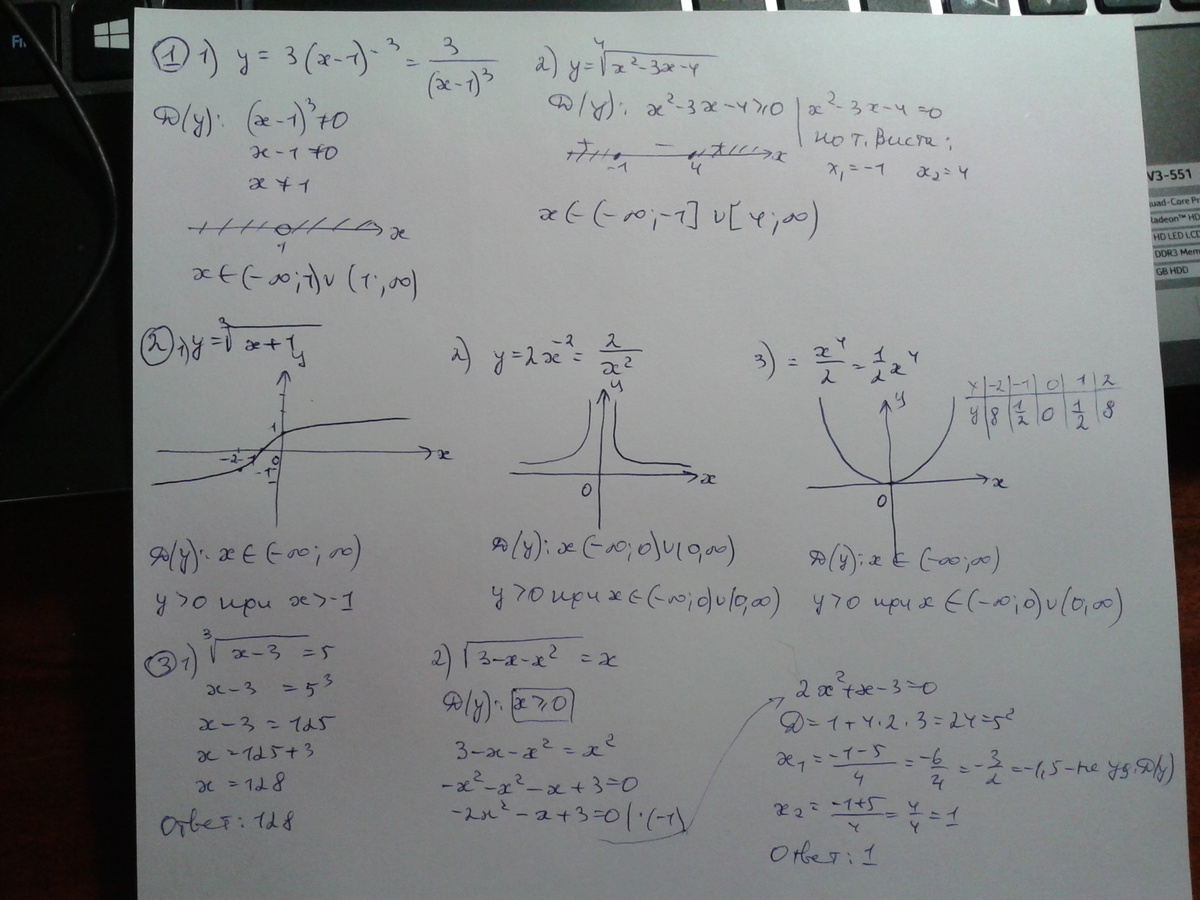 ① 1) y = 3(x-1)⁻³ = 3/(x-1)³
D(y): (x-1)³ ≠ 0
x-1 ≠ 0
x ≠ 1
1 x
x ∈ (-∞; 1) ∪ (1; ∞)
2) y = ⁴√(x²-3x-4)
D(y): x²-3x-4 ≥ 0 | x²-3x-4 = 0
по т. Виета:
x₁ = -1 x₂ = 4
+ - + -1 4 x
x ∈ (-∞; -1] ∪ [4; ∞)
② 1) y = ³√(x+1)
y 1 -2 -1 0 -1 x
D(y): x ∈ (-∞; ∞)
y > 0 при x > -1
2) y = 2x⁻² = 2/x²
y 0 x
D(y): x (-∞; 0) ∪ (0, ∞)
y > 0 при x ∈ (-∞; 0) ∪ (0, ∞)
3) = x⁴/2 = 1/2 x⁴
x | -2 | -1 | 0 | 1 | 2
y | 8 | 1/2 | 0 | 1/2 | 8
y 0 x
D(y): x ∈ (-∞; ∞)
y > 0 при x ∈ (-∞; 0) ∪ (0, ∞)
③ 1) ³√(x-3) = 5
x-3 = 5³
x-3 = 125
x = 125+3
x = 128
Ответ: 128
2) √(3-x-x²) = x
D(y): x ≥ 0
3-x-x² = x²
-x²-x²-x+3 = 0
-2x²-x+3 = 0 | ·(-1)
2x²+x-3 = 0
D = 1+4·2·3 = 24 = 5²
x₁ = (-1-5)/4 = -6/4 = -3/2 = -1,5 - не уд. D(y)
x₂ = (-1+5)/4 = 4/4 = 1
Ответ: 1
V3-551
uad-Core Pr
adeon™ HD
HD LED LCD
DDR3 Mem
GB HDD